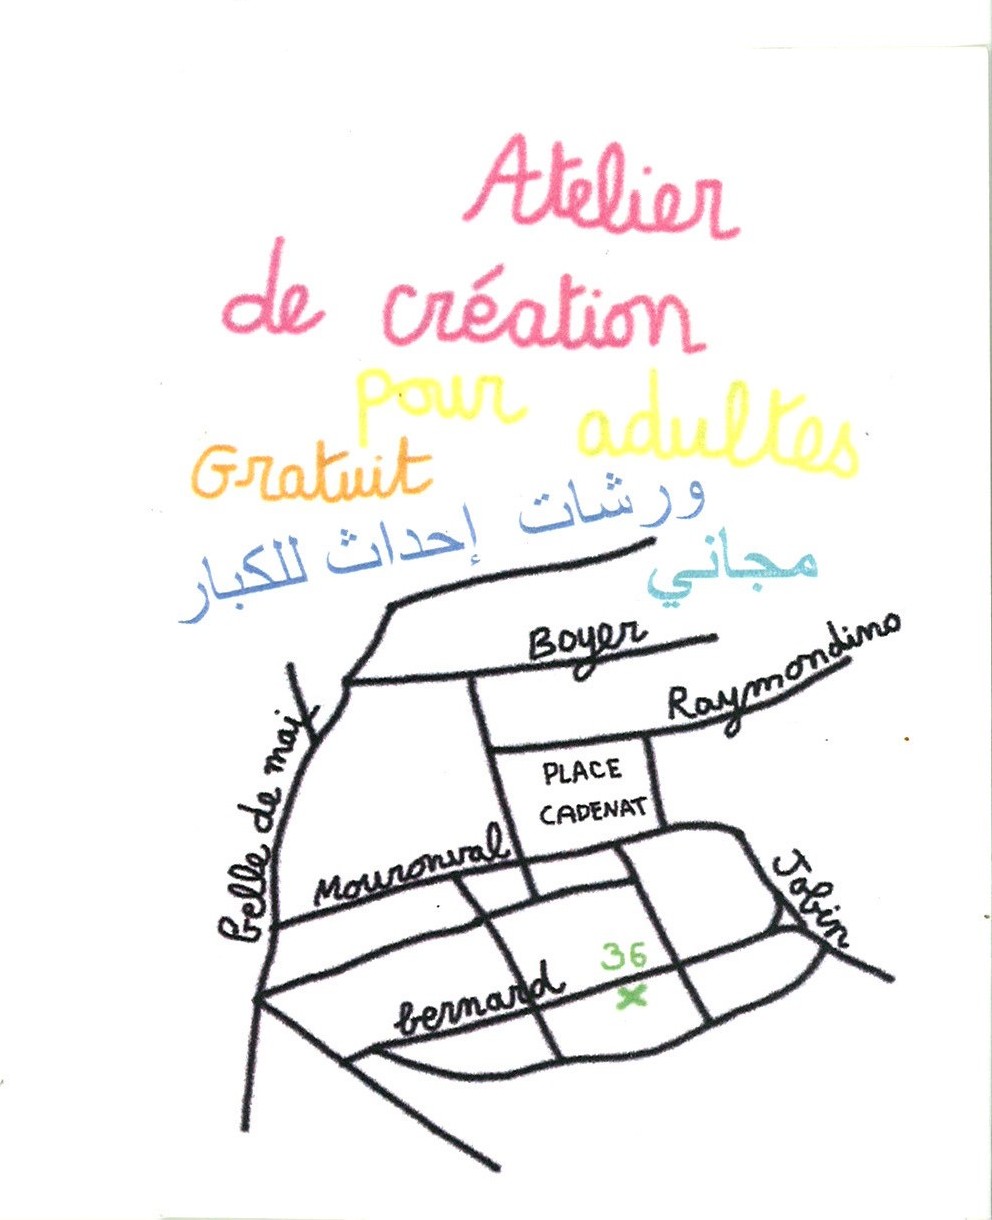 Atelier
de création
pour adultes
Gratuit
ورشات إحداث للكبار
مجاني
Boyer
Raymondino
belle de mai
PLACE
CADENAT
Mouronval
Jobin
36
bernard